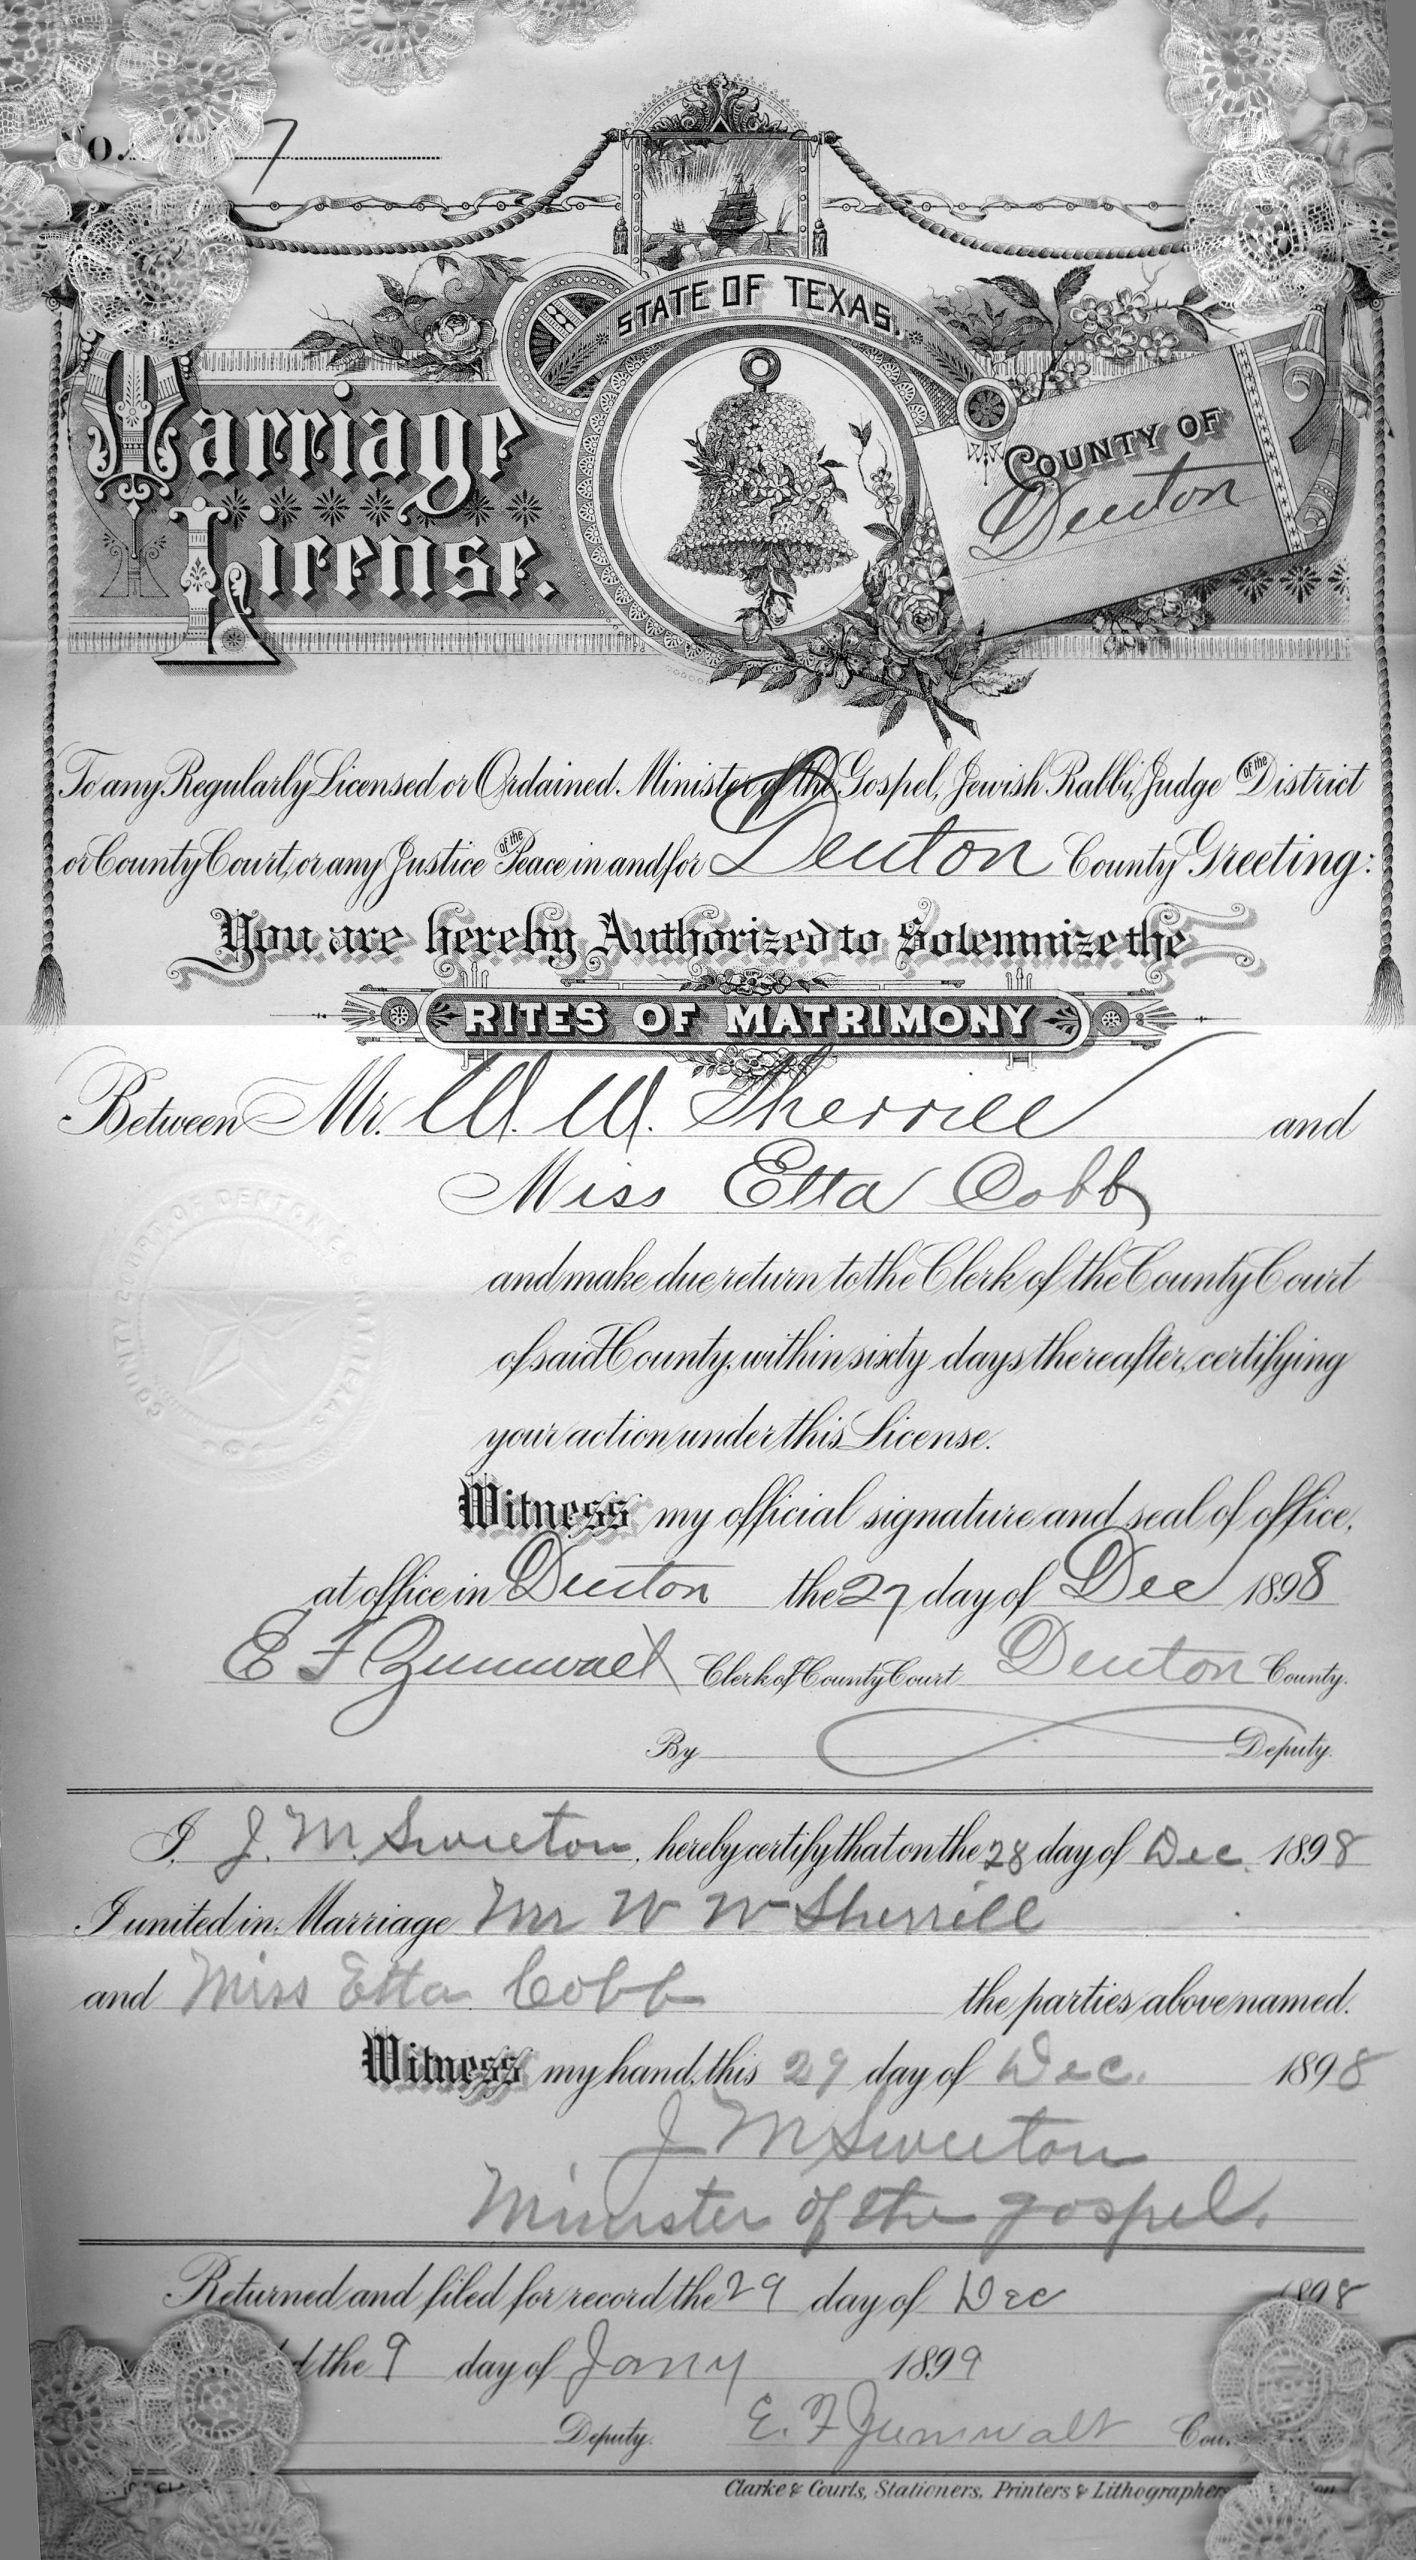 No. 7
STATE OF TEXAS.
Marriage
License.
COUNTY OF
Denton
To any Regularly Licensed or Ordained Minister of the Gospel, Jewish Rabbi, Judge of the District
or County Court, or any Justice of the Peace in and for Denton County Greeting:
You are hereby Authorized to Solemnize the
RITES OF MATRIMONY
Between Mr. W. W. Sherrill and
Miss Etta Cobb
and make due return to the Clerk of the County Court
of said County, within sixty days thereafter, certifying
your action under this License.
COUNTY COURT OF DENTON COUNTY TEXAS
Witness my official signature and seal of office,
at office in Denton the 27 day of Dec 1898
E F Zumwalt Clerk of County Court Denton County.
By Deputy.
I, J. M. Sweeton, hereby certify that on the 28 day of Dec. 1898
I united in Marriage Mr W W Sherrill
and Miss Etta Cobb the parties above named.
Witness my hand, this 29 day of Dec. 1898
J M Sweeton
Minister of the gospel.
Returned and filed for record the 29 day of Dec 1898
the 9 day of Jany 1899
Deputy. E. F Zumwalt
Clarke & Courts, Stationers, Printers & Lithographers